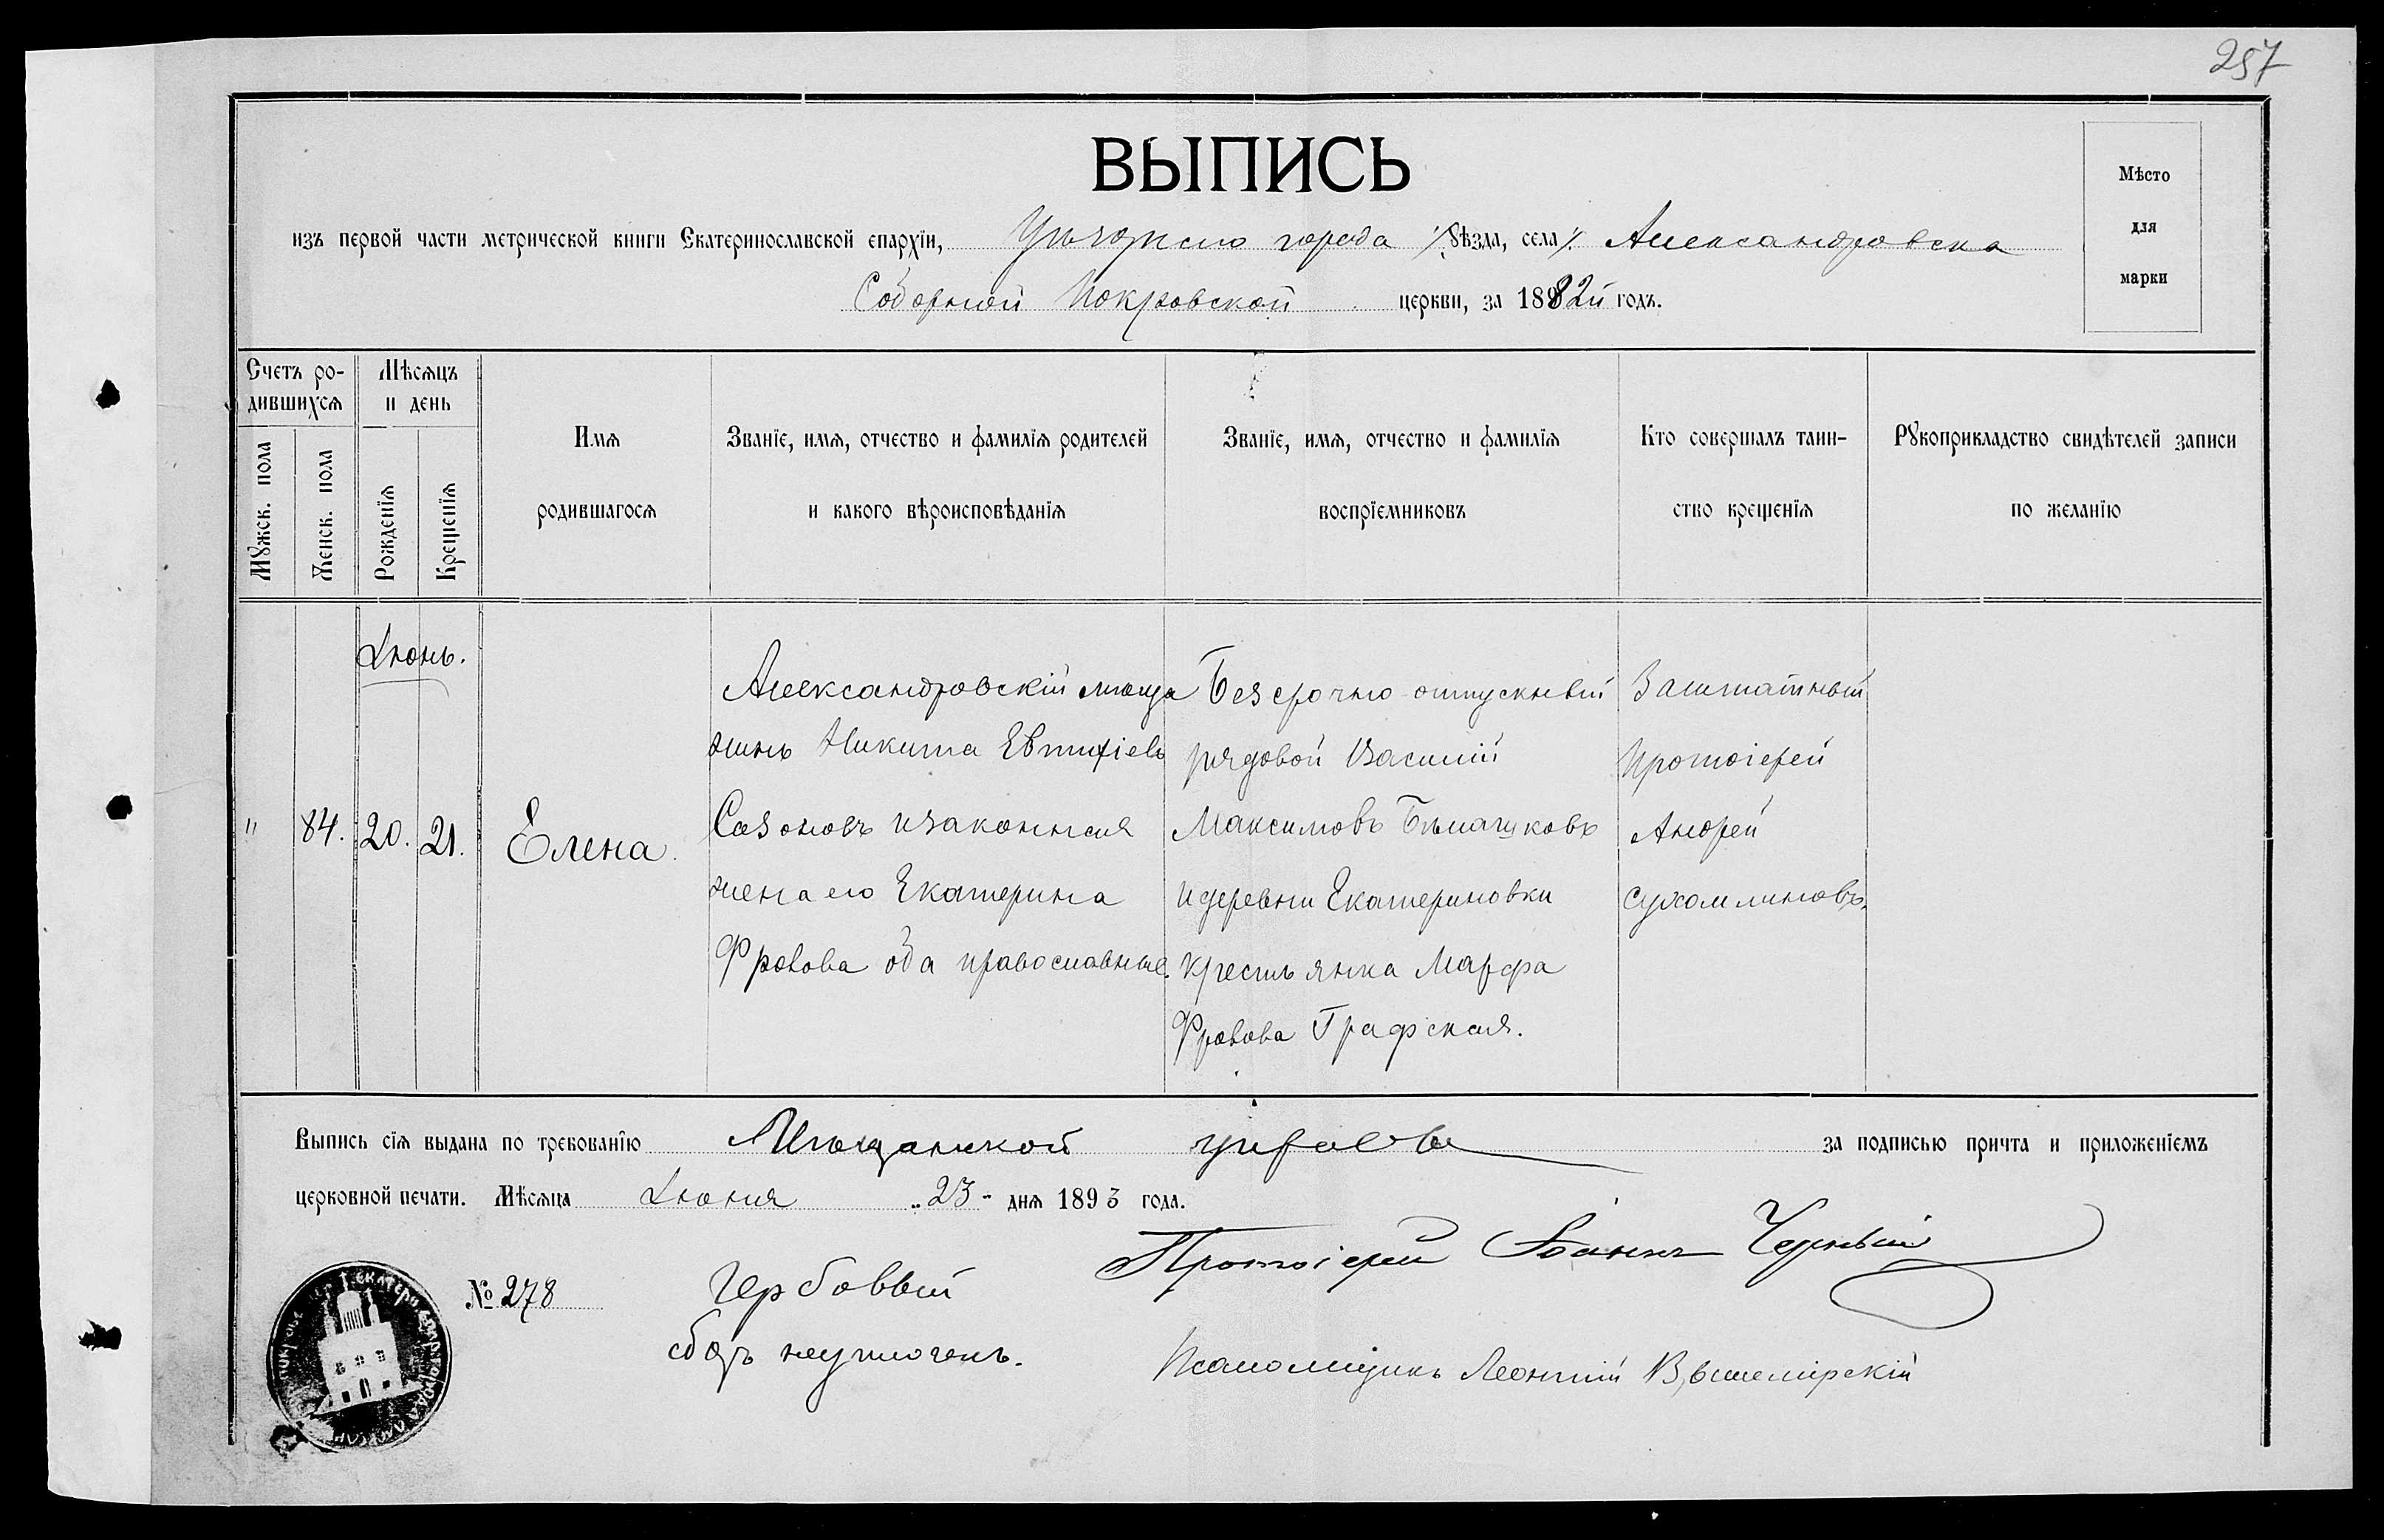 257
ВЫПИСЬ
Мѣсто
для
марки
изъ первой части метрической книги Екатеринославской епархїи, Уѣзднаго города уѣзда, села Александровска
Соборной Покровской церкви, за 1882й годъ.
Счетъ ро-
дившихся
Мѣсяцъ
и день
Мужск. пола
Женск. пола
Рожденїя
Крещенїя
Имя
родившагося
Званїе, имя, отчество и фамилїя родителей
и какого вѣроисповѣданїя
Званїе, имя, отчество и фамилїя
воспрїемниковъ
Кто совершалъ таин-
ство крещенїя
Рукоприкладство свидѣтелей записи
по желанїю
Іюнь.
" 84. 20. 21.
Елена.
Александровскій мѣща
нинъ Никита Евтихіевъ
Сазоновъ изаконная
жена его Екатерина
Фролова оба православные.
Безсрочно-отпускный
рядовой Василій
Максимовъ Бѣлашковъ
идеревни Екатериновки
крестьянка Марфа
Фролова Графская.
Заштатный
Протоіерей
Андрей
Сухомлиновъ.
Выпись сїя выдана по требованїю Мѣщанской управы за подписью причта и приложенїемъ
церковной печати. Мѣсяца Іюня „23" дня 1893 года.
№ 278
Гербовый
сборъ неуплоченъ.
Протоіерей Іоаннъ Черный
Псаломщикъ Леонтій Вышемірскій